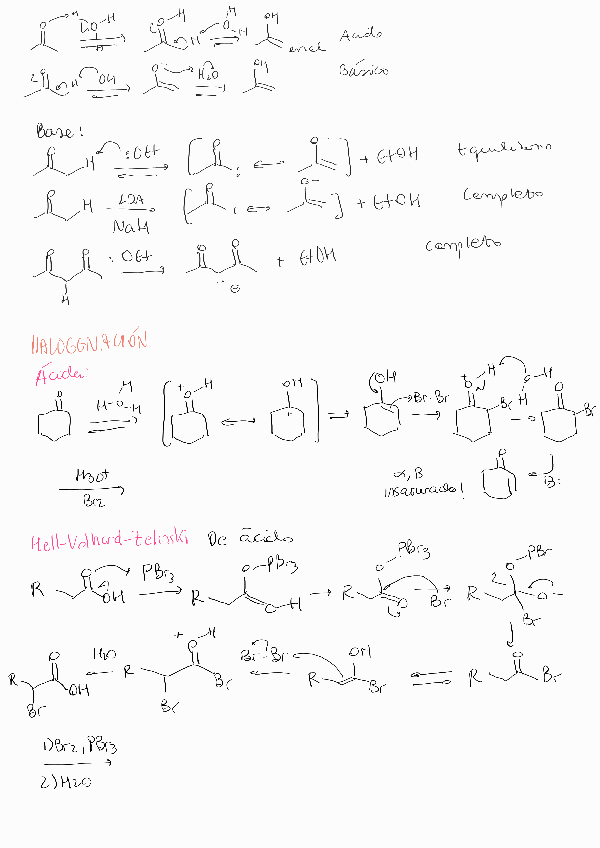 O H O H O H H O H OH enol Ácido
O H OH O H2O OH Básico
Base:
O H :OEt O O + EtOH Equilibrio
O H LDA NaH O O + EtOH Completo
O O H :OEt O O ⊖ + EtOH Completo
HALOGENACIÓN
Ácida:
O H H-O-H + O H OH + OH Br-Br + O H Br H O H O Br
H3O+ Br2
α, β insaturado! O Br
Hell-Volhard-Zelinski De ácido
R O OH PBr3 R O-PBr3 O-H R O-PBr3 O Br R O-PBr O- Br
R O OH Br H2O R + O H Br Br Br-Br R OH Br R O Br
1) Br2, PBr3
2) H2O